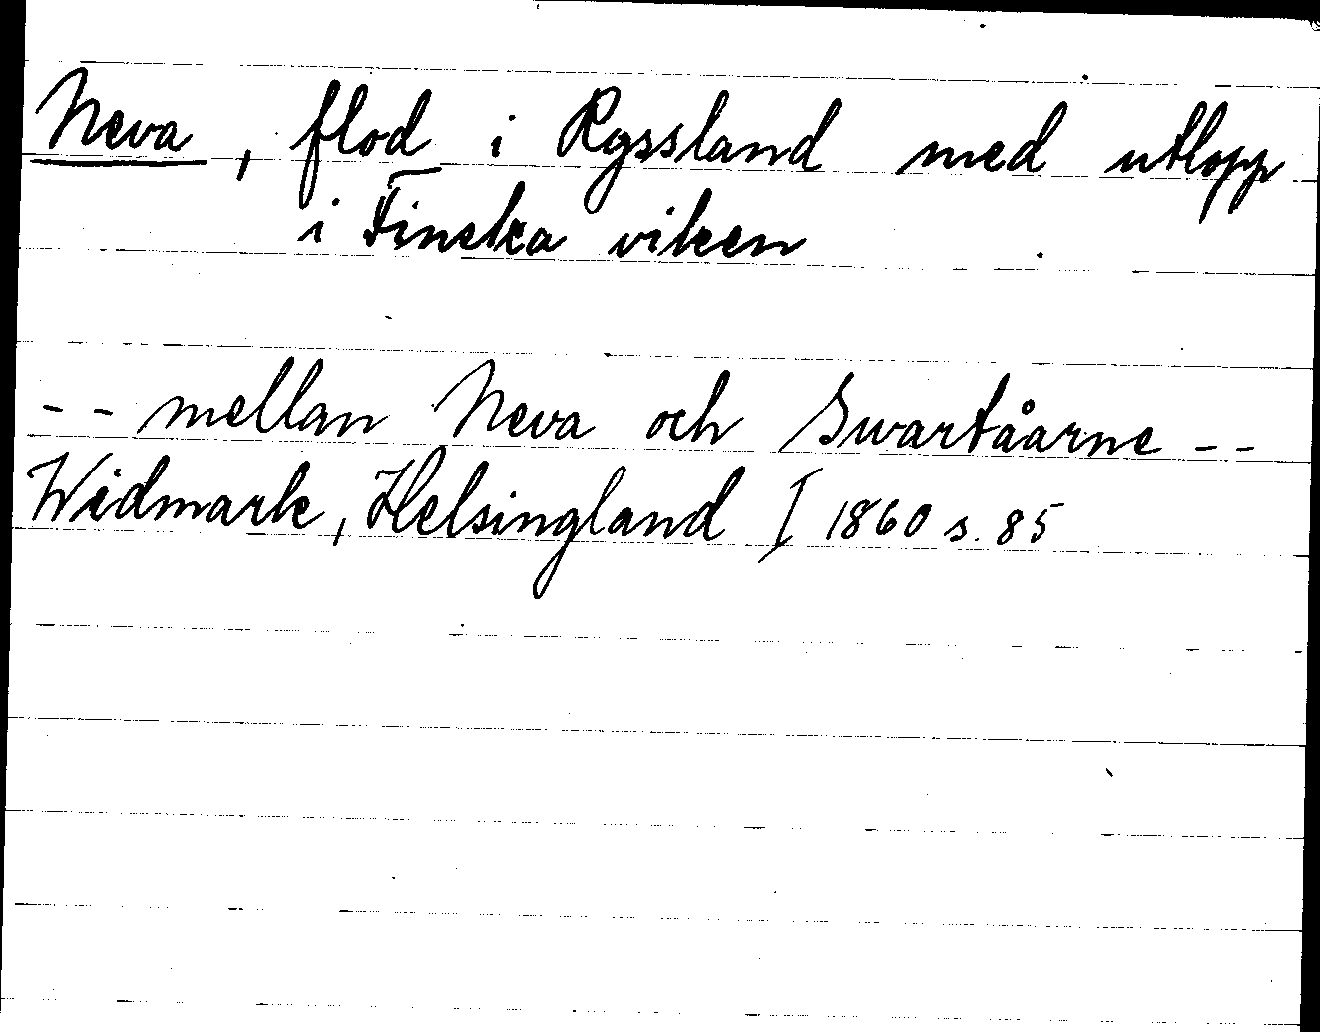 Neva, flod i Ryssland med utlopp
i Finska viken
-- mellan Neva och Swartåarne --
Widmark, Helsingland I 1860 s. 85